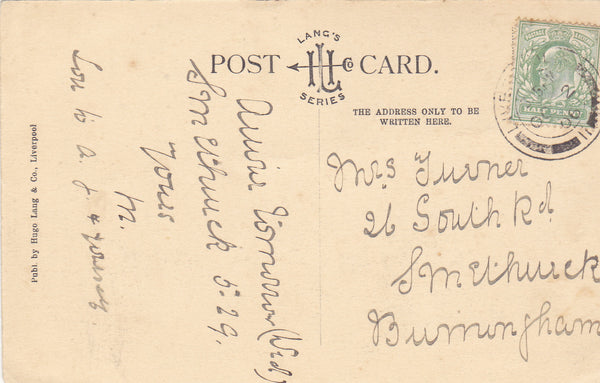 LANG'S
POST CARD.
HL Co
SERIES
THE ADDRESS ONLY TO BE
WRITTEN HERE.
HALF PENNY
Arrive Tomorrow (Wed)
Smethwick 5.29.
Yours
M.
Love to a. f &
Publ. by Hugo Lang & Co., Liverpool
Mrs Turner
26 South Rd
Smethwick
Birmingham